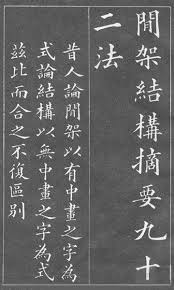 間架結構摘要九十
二法
昔人論間架以有中畫之字為
式論結構以無中畫之字為式
茲比而合之不復區別